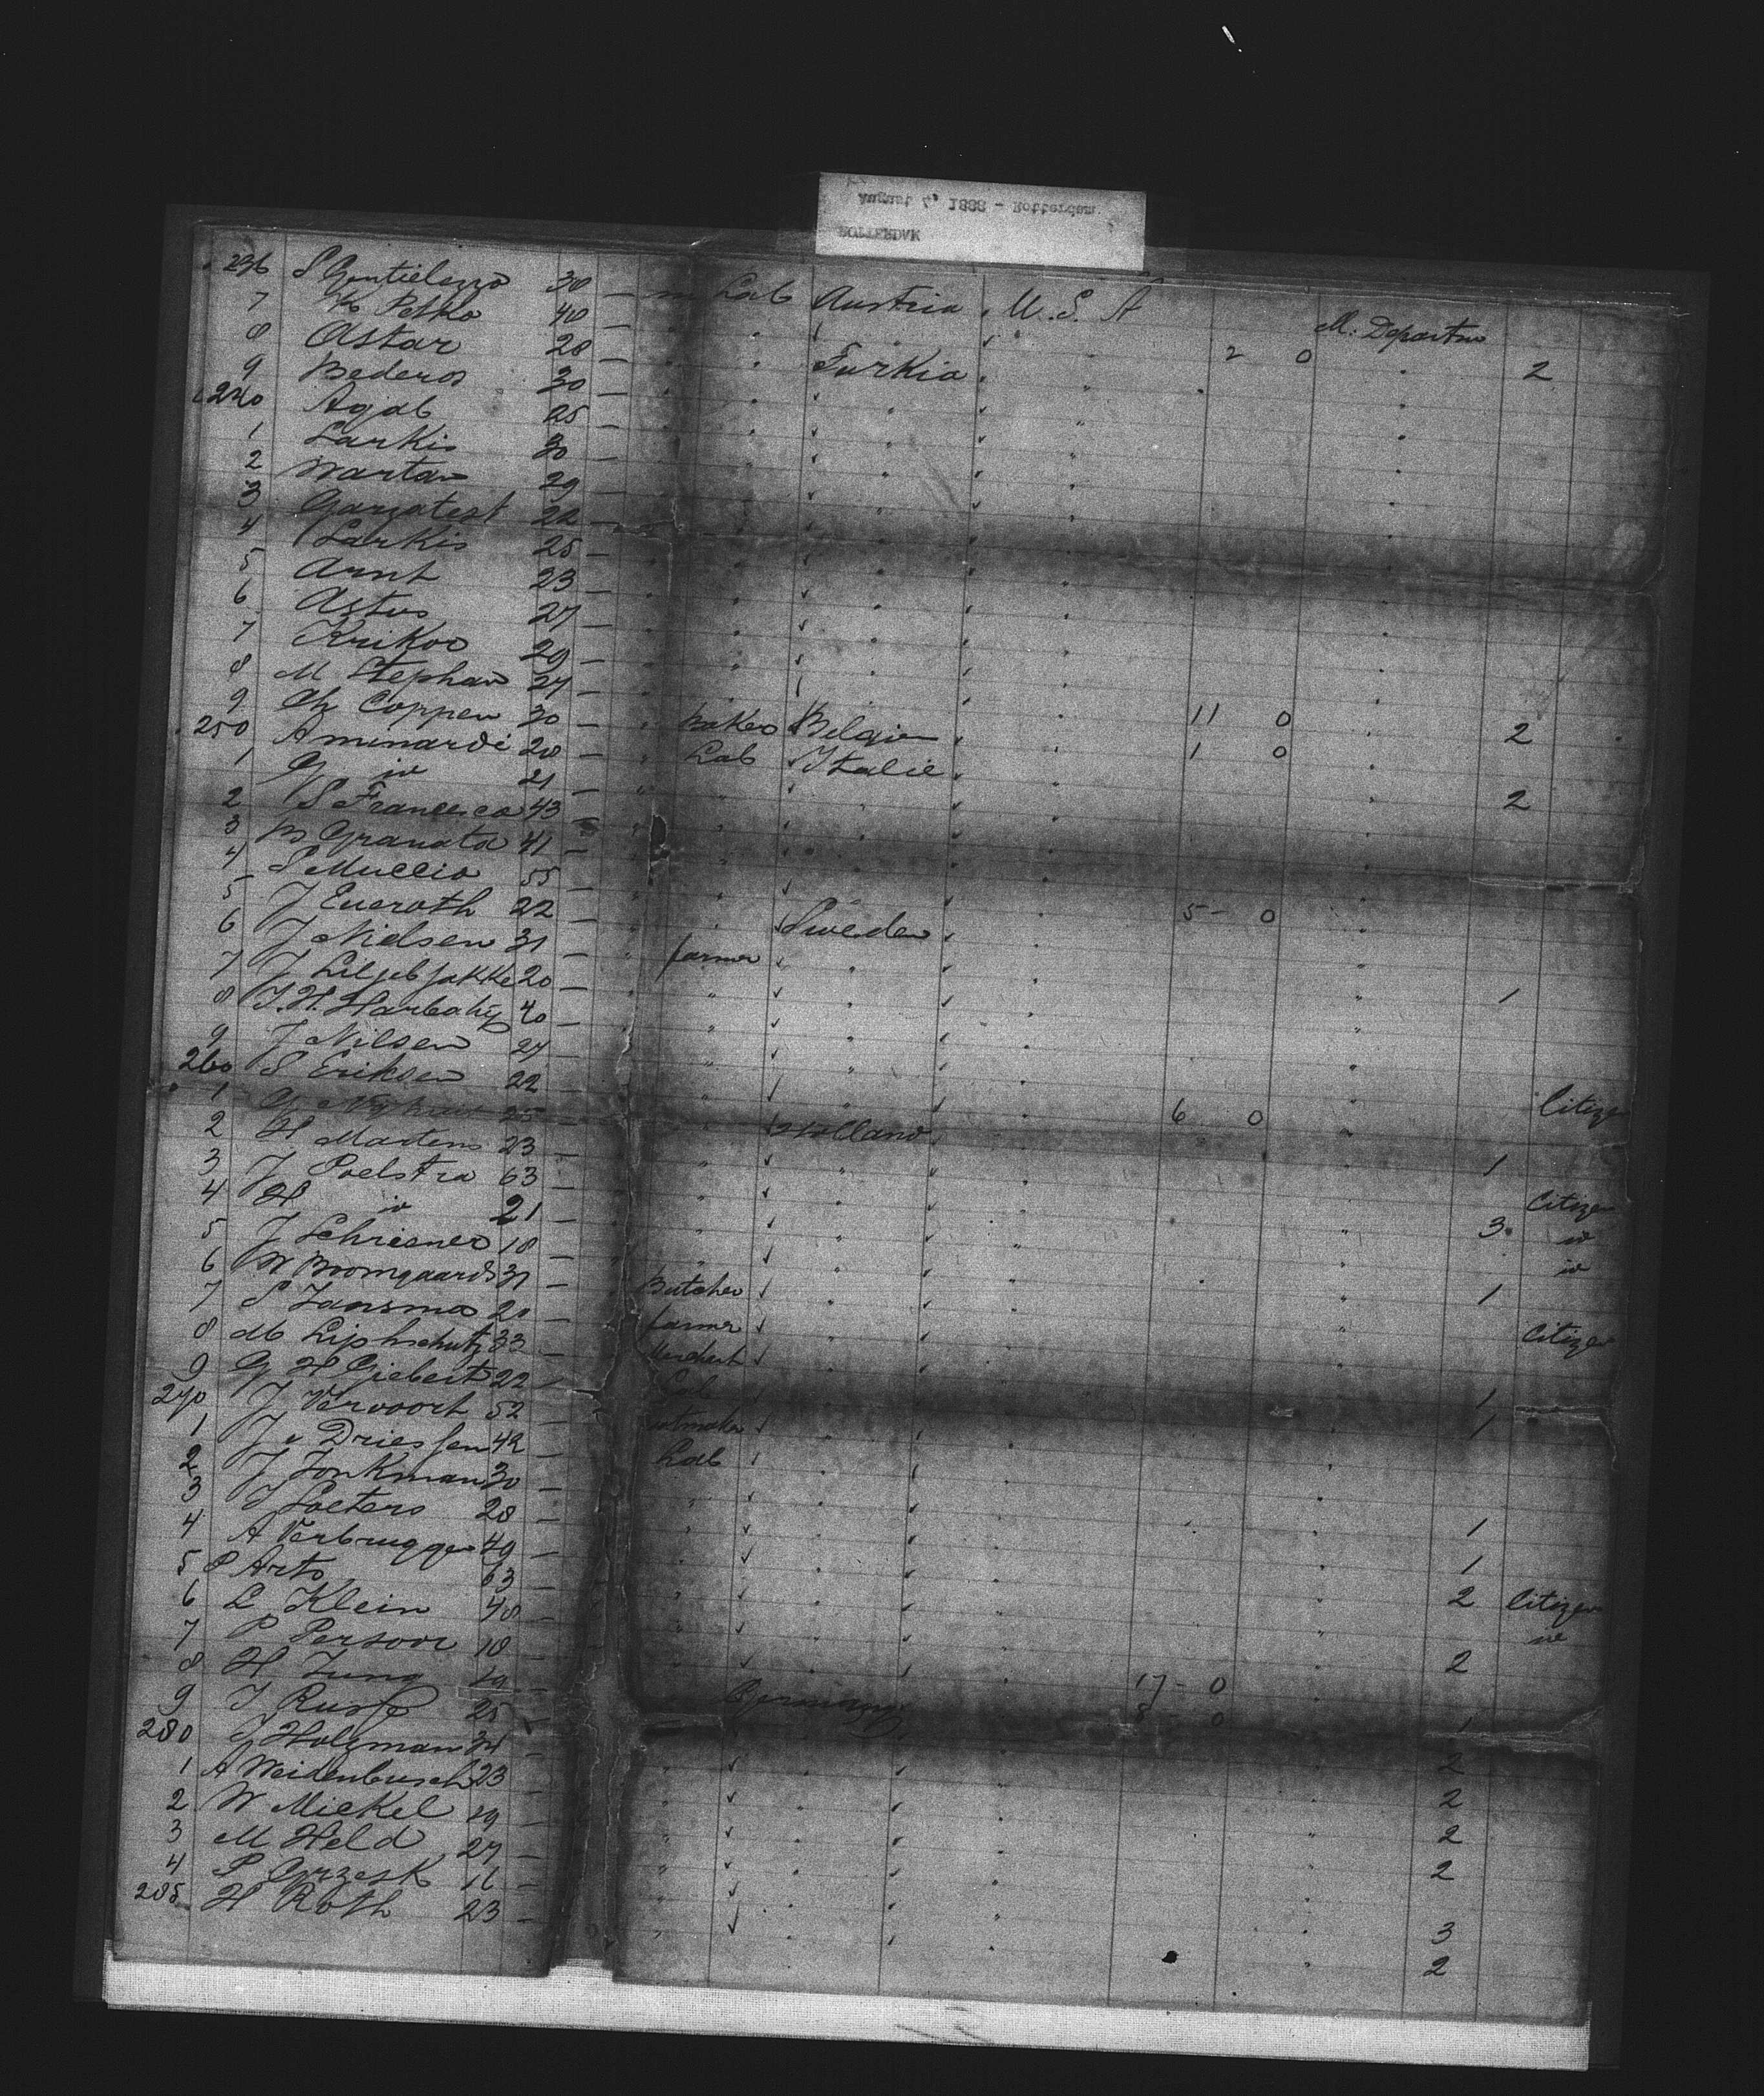 ROTTERDAM
August 4, 1888 - Rotterdam
236 S 30 — m Lab Austria M. S. A M. Departm
7 K Petko 40 — 2 0 2
8 Astar 28 — Turkia
9 Bederos 30 —
240 Agob 25 —
1 Sarkis 30 —
2 Wartan 29
3 22 —
4 Sarkis 25 —
5 Arnt 23 —
6 Astus 27 —
7 Krikoo 29 —
8 M Stephan 27 —
9 Ch Coppen 30 — Baker Belgien 11 0 2
250 A Minardi 28 — Lab Italie 1 0
1 G id 21 — 2
2 S Francesco 43 —
3 B Granata 41 —
4 S Muccio 55 —
5 J Eueroth 22 — Sweden 5 - 0
6 J Nielsen 31 — farmer
7 J 20 — 1
8 J. H. 40 —
9 J Nilsen 27 —
260 S Eriksen 22 —
1 G 25 — Holland 6 0 Citizen
2 H Martens 23 — 1
3 J Poelstra 63 — Citizen
4 H id 21 — 3 id
5 J Schriener 18 — id
6 W Boomgaards 31 — Butcher 1
7 S Jansma 20 — farmer Citizen
8 M Liphschutz 33 — Merchant
9 G H Giebert 22 — Lab 1
270 J Vervoort 52 — 1
1 J v Driessen 42 — Lab
2 J Jonkman 30 —
3 J Soeters 28 — 1
4 A Verbruggen 49 — 1
5 P Arts 63 — 2 Citizen
6 L Klein 48 — id
7 P Persoon 18 — 2
8 H Jung 19 — 17 - 0
9 J 25 — Germany 8 0 1
280 J Holzman 34 — 2
1 A Weidenbusch 23 2
2 W Mickel 19 — 2
3 M Held 27 — 2
4 P Grzesk 16 — 3
285 H Roth 23 — 2